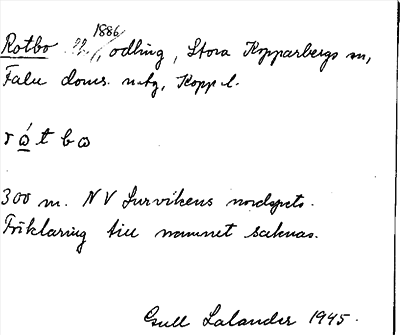 Rotbo 1886, odling, Stora Kopparbergs sn,
Falu doms. ntg, Kopp l.
rώtbω
300 m. NV Survikens nordspets.
Förklaring till namnet saknas.
Gull Lalander 1945.